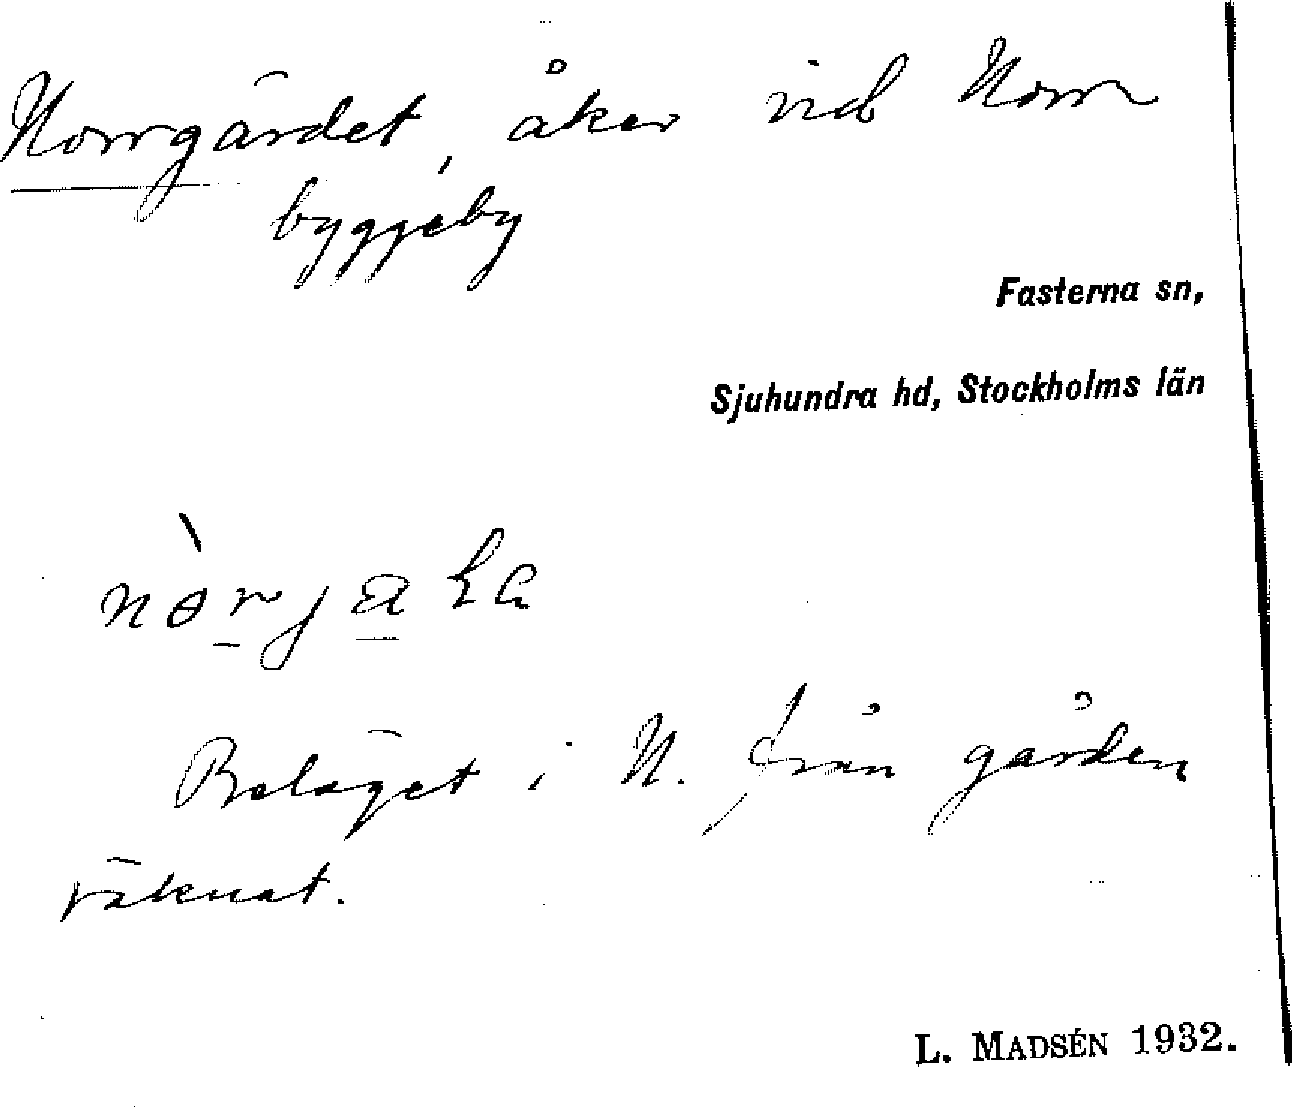 Norrgärdet, åker vid Norr
byggeby
Fasterna sn,
Sjuhundra hd, Stockholms län
Beläget i N. från gården
räknat.
L. MADSÉN 1932.